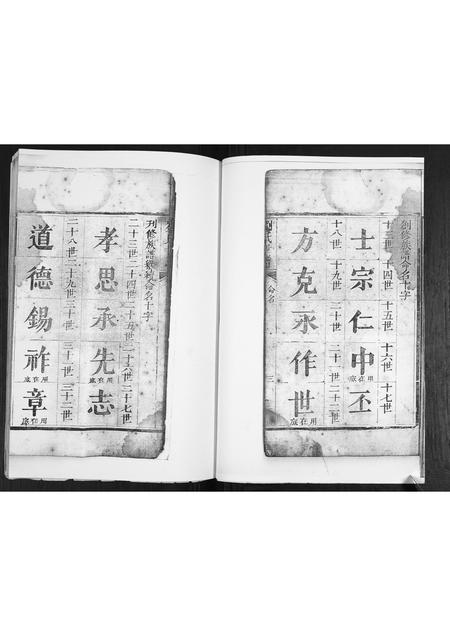 創修族譜命名十字
十三世 十四世 十五世 十六世 十七世
士宗仁中丕
用在底
十八世 十九世 二十世 二十一世 二十二世
方克永作世
用在底
命名
三
刊修族譜續刻命名十字
二十三世 二十四世 二十五世 二十六世 二十七世
孝思承先志
用在底
用在底
二十八世 二十九世 三十世 三十一世 三十二世
道德錫祚章
用在底
用在底